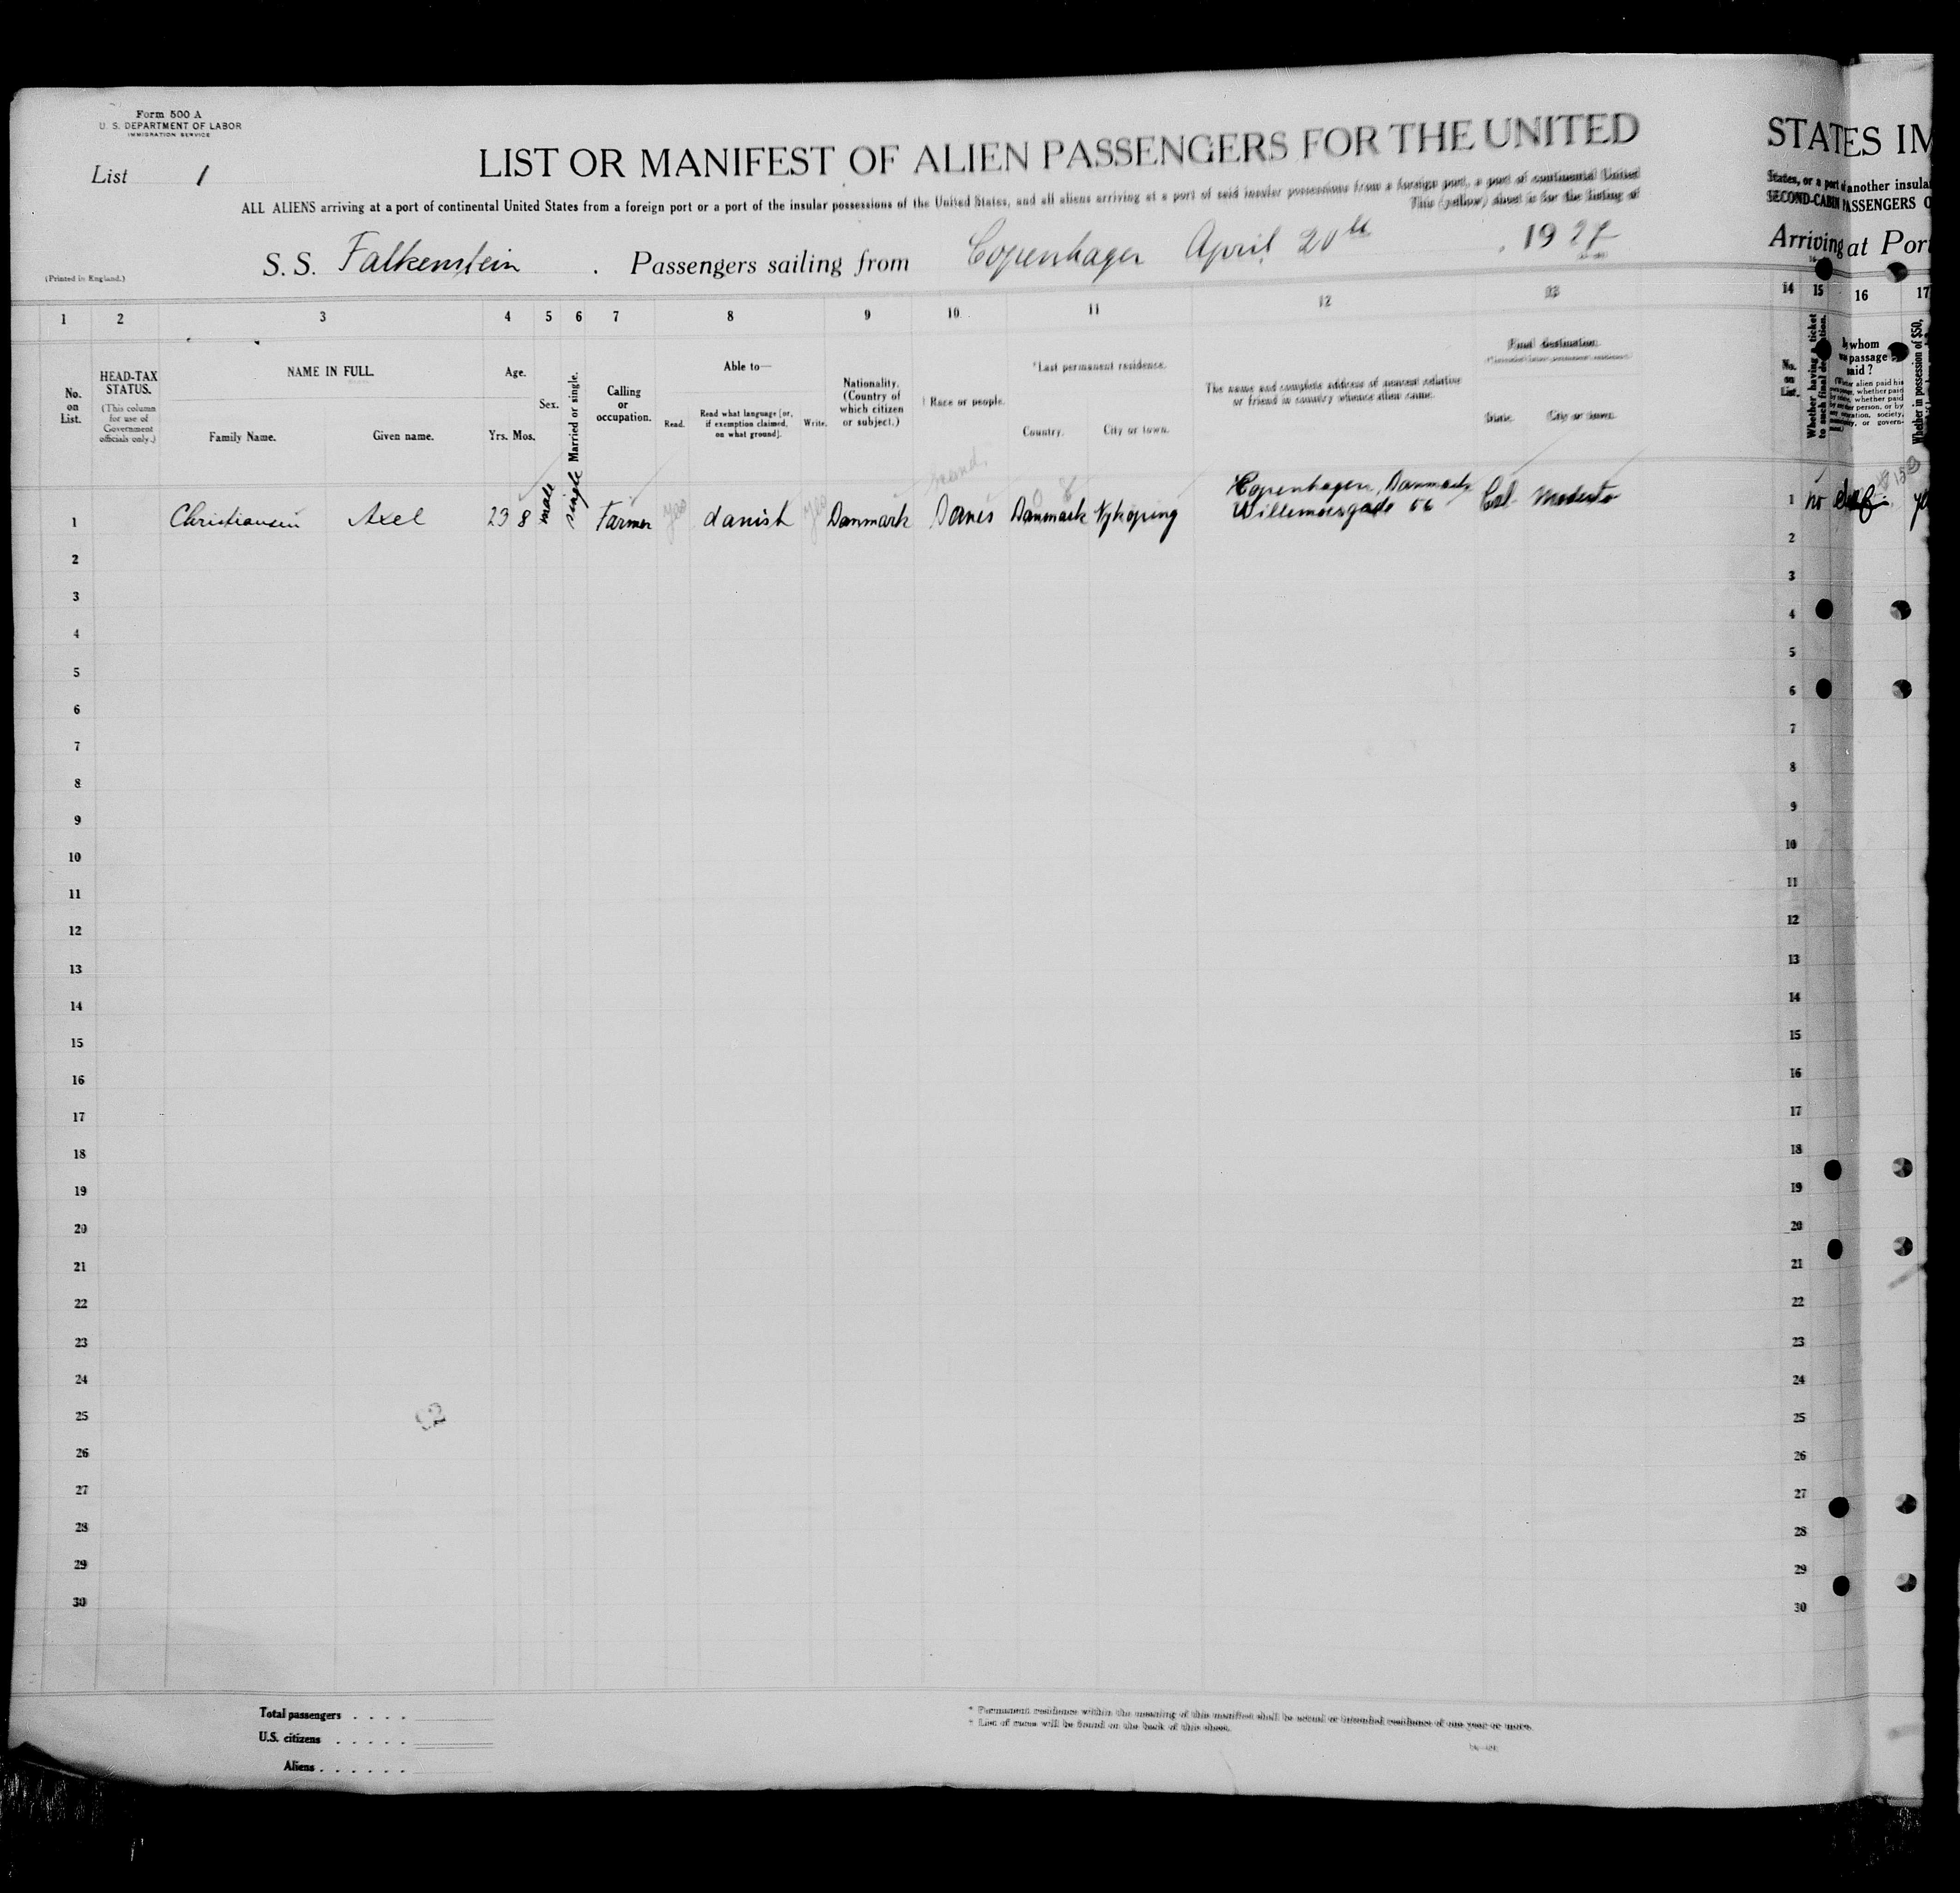 Form 500 A
U. S. DEPARTMENT OF LABOR
IMMIGRATION SERVICE
List 1
LIST OR MANIFEST OF ALIEN PASSENGERS FOR THE UNITED
STATES IM
ALL ALIENS arriving at a port of continental United States from a foreign port or a port of the insular possessions of the United States, and all aliens arriving at a port of said insular possessions from a foreign port, a port of continental United
States, or a port of another insula
This (yellow) sheet is for the listing of
SECOND-CABIN PASSENGERS O
(Printed in England.)
S. S. Falkenstein . Passengers sailing from Copenhagen April 20th , 1927
Arriving at Port
1 2 3 4 5 6 7 8 9 10 11 12 13 14 15 16 17
No. on List.
HEAD-TAX STATUS.
(This column for use of Government officials only.)
NAME IN FULL.
Family Name. Given name.
Age.
Yrs. Mos.
Sex.
Married or single.
Calling or occupation.
Able to—
Read. Read what language [or, if exemption claimed, on what ground]. Write.
Nationality. (Country of which citizen or subject.)
† Race or people.
*Last permanent residence.
Country. City or town.
The name and complete address of nearest relative or friend in country whence alien came.
Final destination.
State. City or town.
No. on List.
Whether having a ticket to such final destination.
By whom was passage paid ?
Whether in possession of $50,
1 Christiansen Axel 23 8 male single Farmer yes danish yes Danmark Danes Danmark Nykoping Copenhagen, Danmark Willemoesgade 56 Cal Modesto 1 no
2 2
3 3
4 4
5 5
6 6
7 7
8 8
9 9
10 10
11 11
12 12
13 13
14 14
15 15
16 16
17 17
18 18
19 19
20 20
21 21
22 22
23 23
24 24
25 25
26 26
27 27
28 28
29 29
30 30
Total passengers . . . .
U.S. citizens . . . . .
Aliens . . . . . .
* Permanent residence within the meaning of this manifest shall be actual or intended residence of one year or more.
† List of races will be found on the back of this sheet.